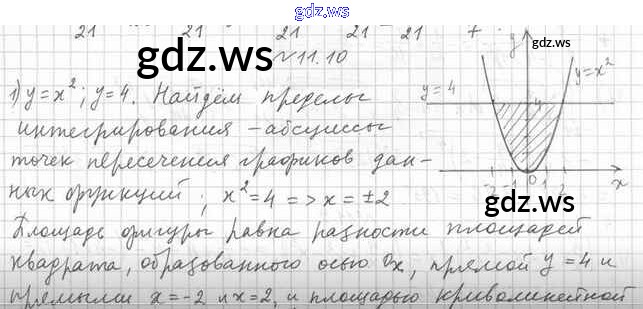 gdz.ws
21 21 21 21
№11.10
1) y=x²; y=4. Найдём пределы
интегрирования – абсциссы
точек пересечения графиков дан-
ных функций; x²=4 => x=±2
Площадь фигуры равна разности площадей
квадрата, образованного осью Ox, прямой y=4 и
прямыми x=-2 и x=2, и площадью криволинейной
y
y=x²
y=4
4
-2 -1 0 1 2 x
gdz.ws
gdz.ws
gdz.ws